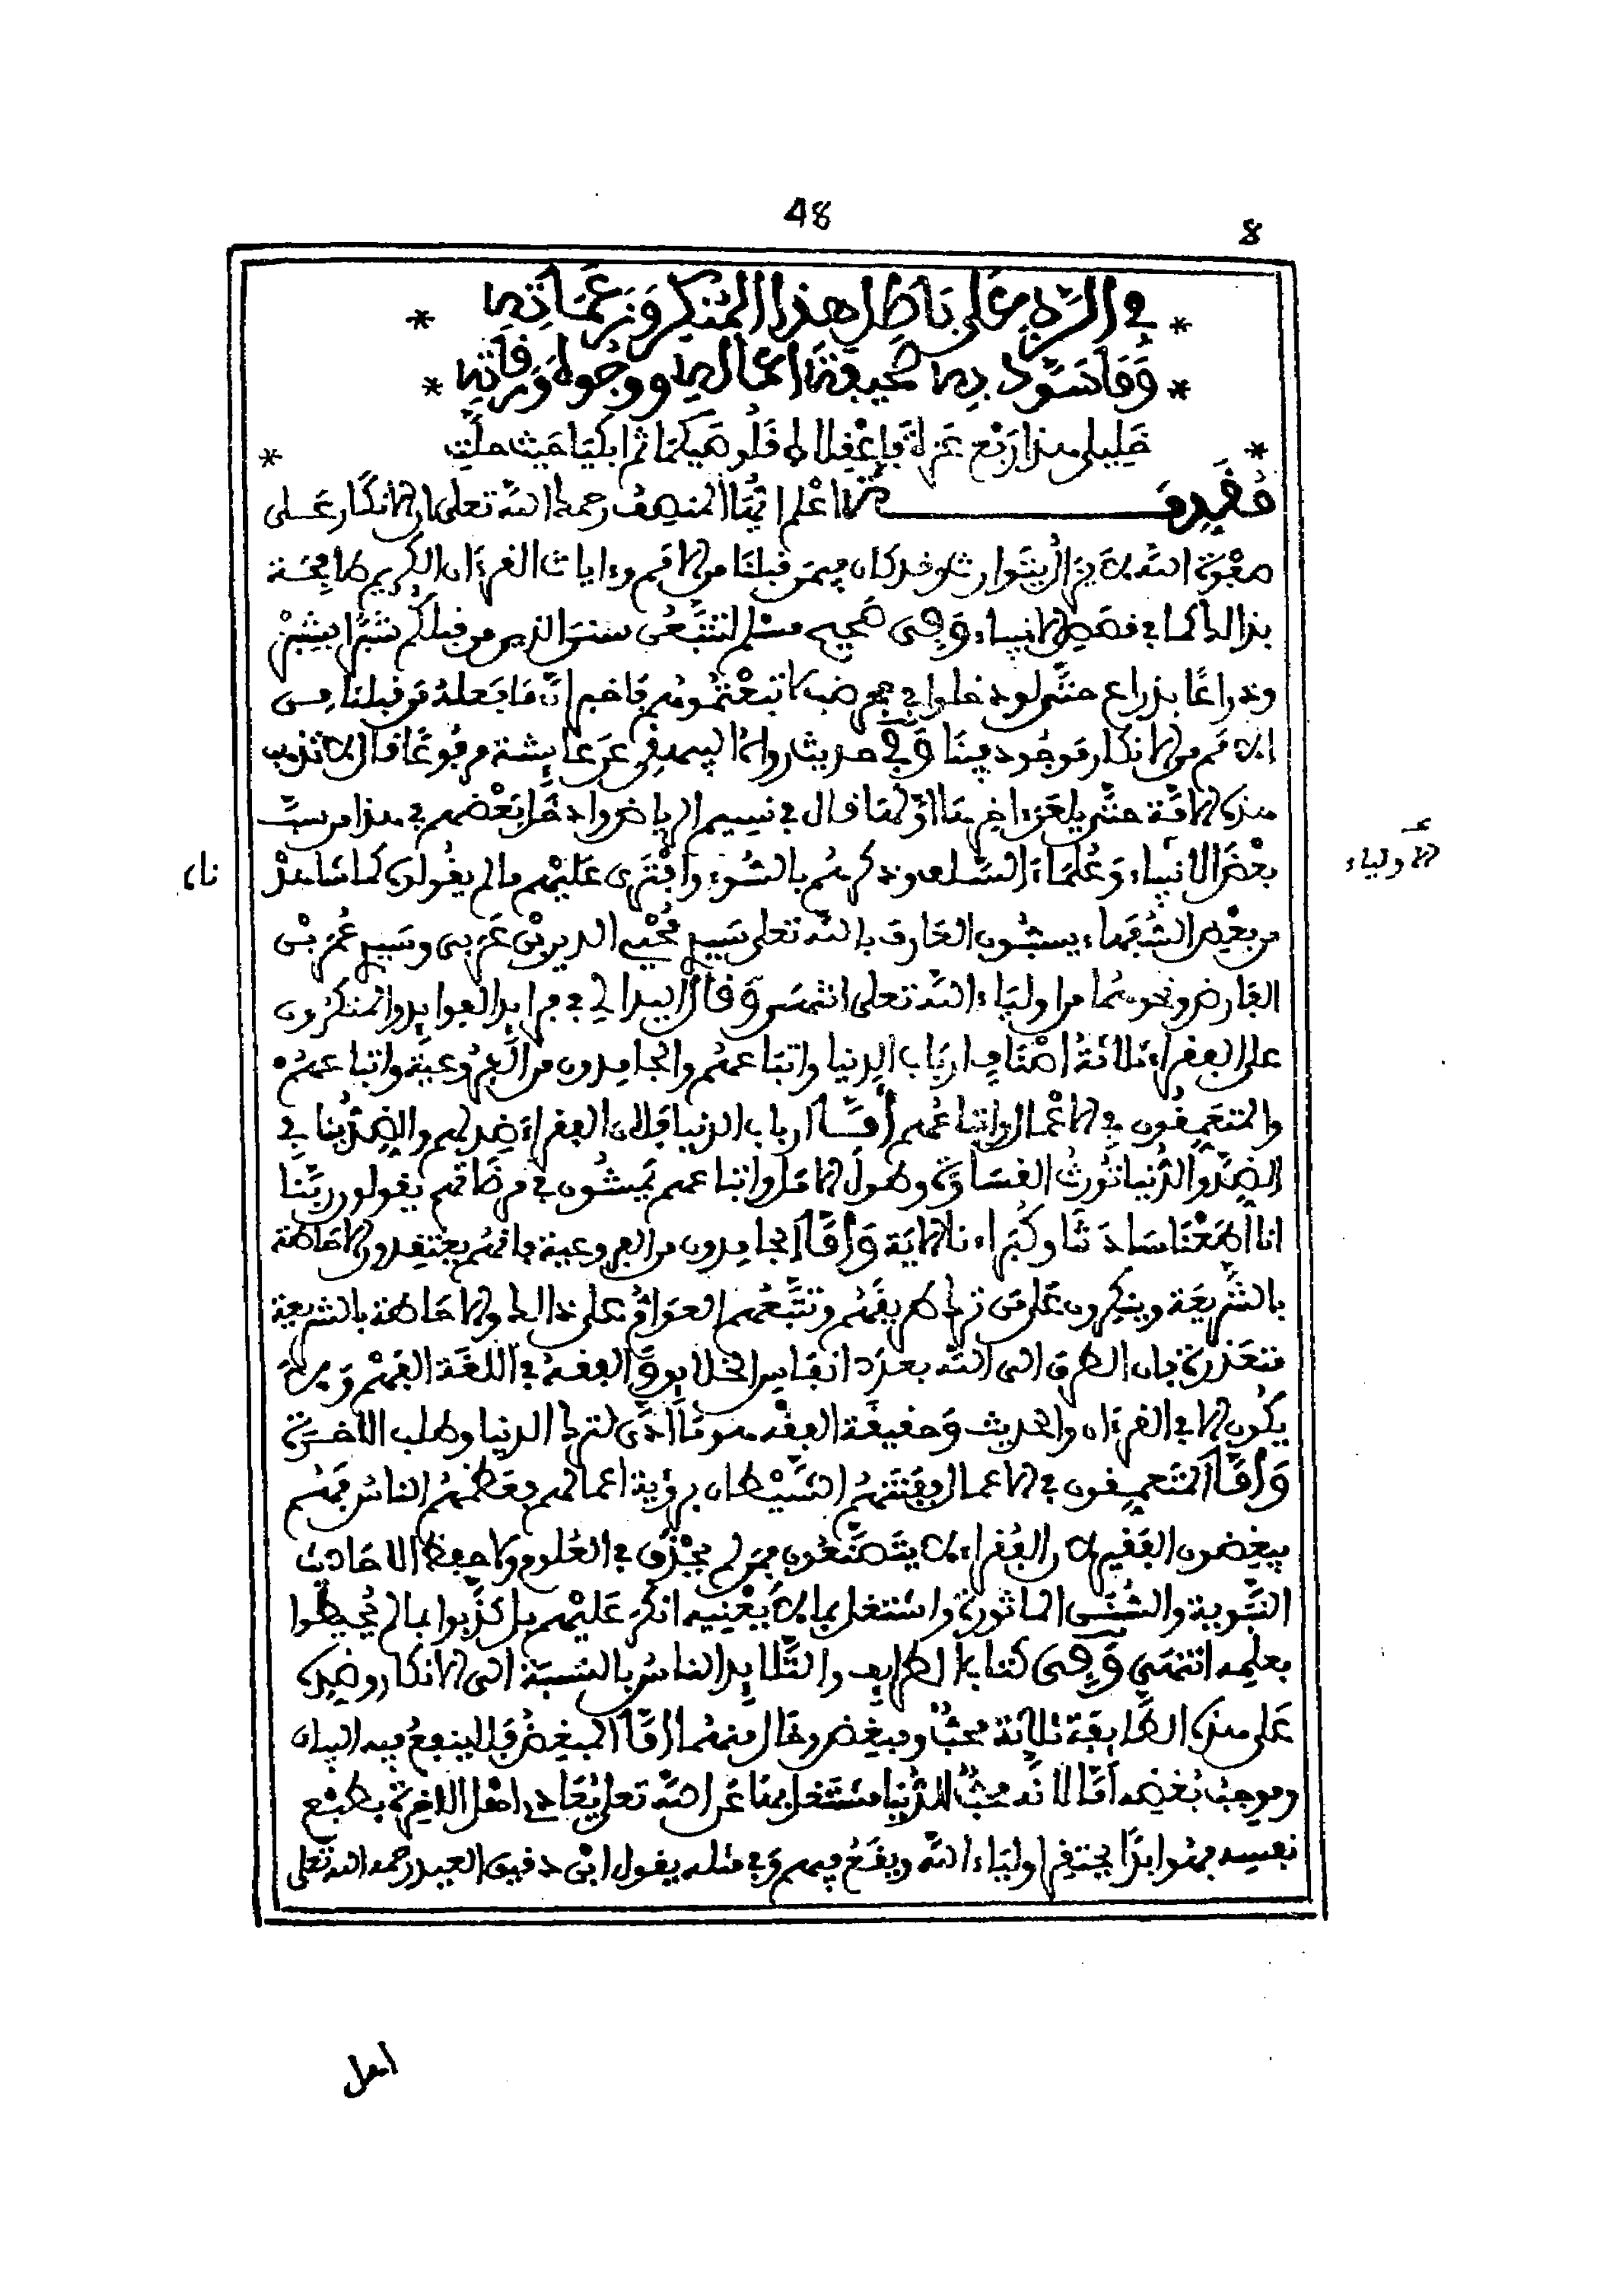 48
8
* في الرد على باطل هذا المنكر وزعماته *
* وما سود به صحيفة أعماله ووجوه ورقاته *
* خليلي هذا ربع عزة فاعقلا قلوصيكما ثم ابكيا حيث حلت *
مقدمة اعلم أيها المنصف رحمك الله تعالى أن الانكار على
صفوة الله لا يزال يتوارث وقد كان فيمن قبلنا من الامم وءايات القرءان الكريم طافحة
بذالك كما في قصص الانبياء وفي صحيح مسلم لتتبعن سنن الذين من قبلكم شبرا بشبر
وذراعا بذراع حتى لو دخلوا في جحر ضب لاتبعتموهم فاخبر أن ما فعله من قبلنا من
الامم من الانكار موجود فينا وفي حديث رواه البيهقي عن عايشة مرفوعا قال لا تذهب
هذه الامة حتى يلعن ءاخرها أولها قال في نسيم الرياض وادخل بعضهم في هذا من سب
بعض الانبياء وعلماء السلف وذكرهم بالسوء وافترى عليهم ما لم يقولوه كما شاهد
الاولياء صح
نا،
من بعض السفهاء يسبون العارف بالله تعلى سيدي محيي الدين بن عربي وسيدي عمر بن
الفارض ونحوهما من اولياء الله تعلى انتهى وقال البيدالي في فرايد الفوايد والمنكرون
على الفقراء ثلاثة اصناف ارباب الدنيا واتباعهم والجامدون من الفروعية واتباعهم
والمتعمقون في الاعمال واتباعهم أما ارباب الدنيا فلان الفقراء ضد لهم والضد ينافي
الضد والدنيا تورث القساوة وطول الامل واتباعهم يمشون في مرضاتهم يقولون ربنا
انا اطعنا سادتنا وكبراءنا الاية وأما الجامدون من الفروعية فانهم يعتقدون الاحاطة
بالشريعة وينكرون على من ترك طريقهم وتتبعهم العوام على ذالك والاحاطة بالشريعة
متعذرة فان الطرق الى الله بعدد انفاس الخلايق والفقه في اللغة الفهم ولا
يكون الا في القرءان والحديث وحقيقة الفقه هو ما أدى لترك الدنيا وطلب الاخرة
وأما المتعمقون في الاعمال فتنهم الشيطان برؤية اعمالهم فعظمهم الناس فهم
يبغضون الفقير لان الفقراء لا يتصنعون فمن لم يحذق في العلوم ولا حفظ الاحاديث
النبوية والسنن الماثورة واشتغل بما لا يعنيه انكر عليهم بل كذبوا بما لم يحيطوا
بعلمه انتهى وفي كتاب الطرايف والتلايد الناس بالنسبة الى الانكار وضده
على هذه الطايفة ثلاثة محب ومبغض وخال منهما أما المبغض فلا ينفع فيه البيان
وموجب بغضه أما لانه محب للدنيا مشتغل بها عن الله تعلى يعادي اهل الاخرة بطبع
نفسه فهو ابدا يحتقر اولياء الله ويقع فيهم وفي مثله يقول ابن دقيق العيد رحمه الله تعلى
اهل